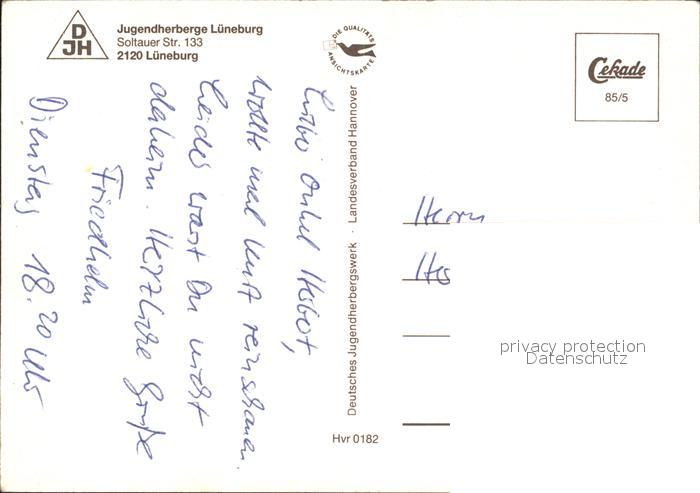 DJH
Jugendherberge Lüneburg
Soltauer Str. 133
2120 Lüneburg
DIE QUALITÄTS
ANSICHTSKARTE
Cekade
85/5
Lieber Onkel Herbert,
wollte mal kurz reinschauen.
Leider warst Du nicht
daheim. Herzliche Grüße
Friedhelm
Dienstag 18.20 Uhr
Deutsches Jugendherbergswerk · Landesverband Hannover
Hvr 0182
Herrn
He
privacy protection
Datenschutz